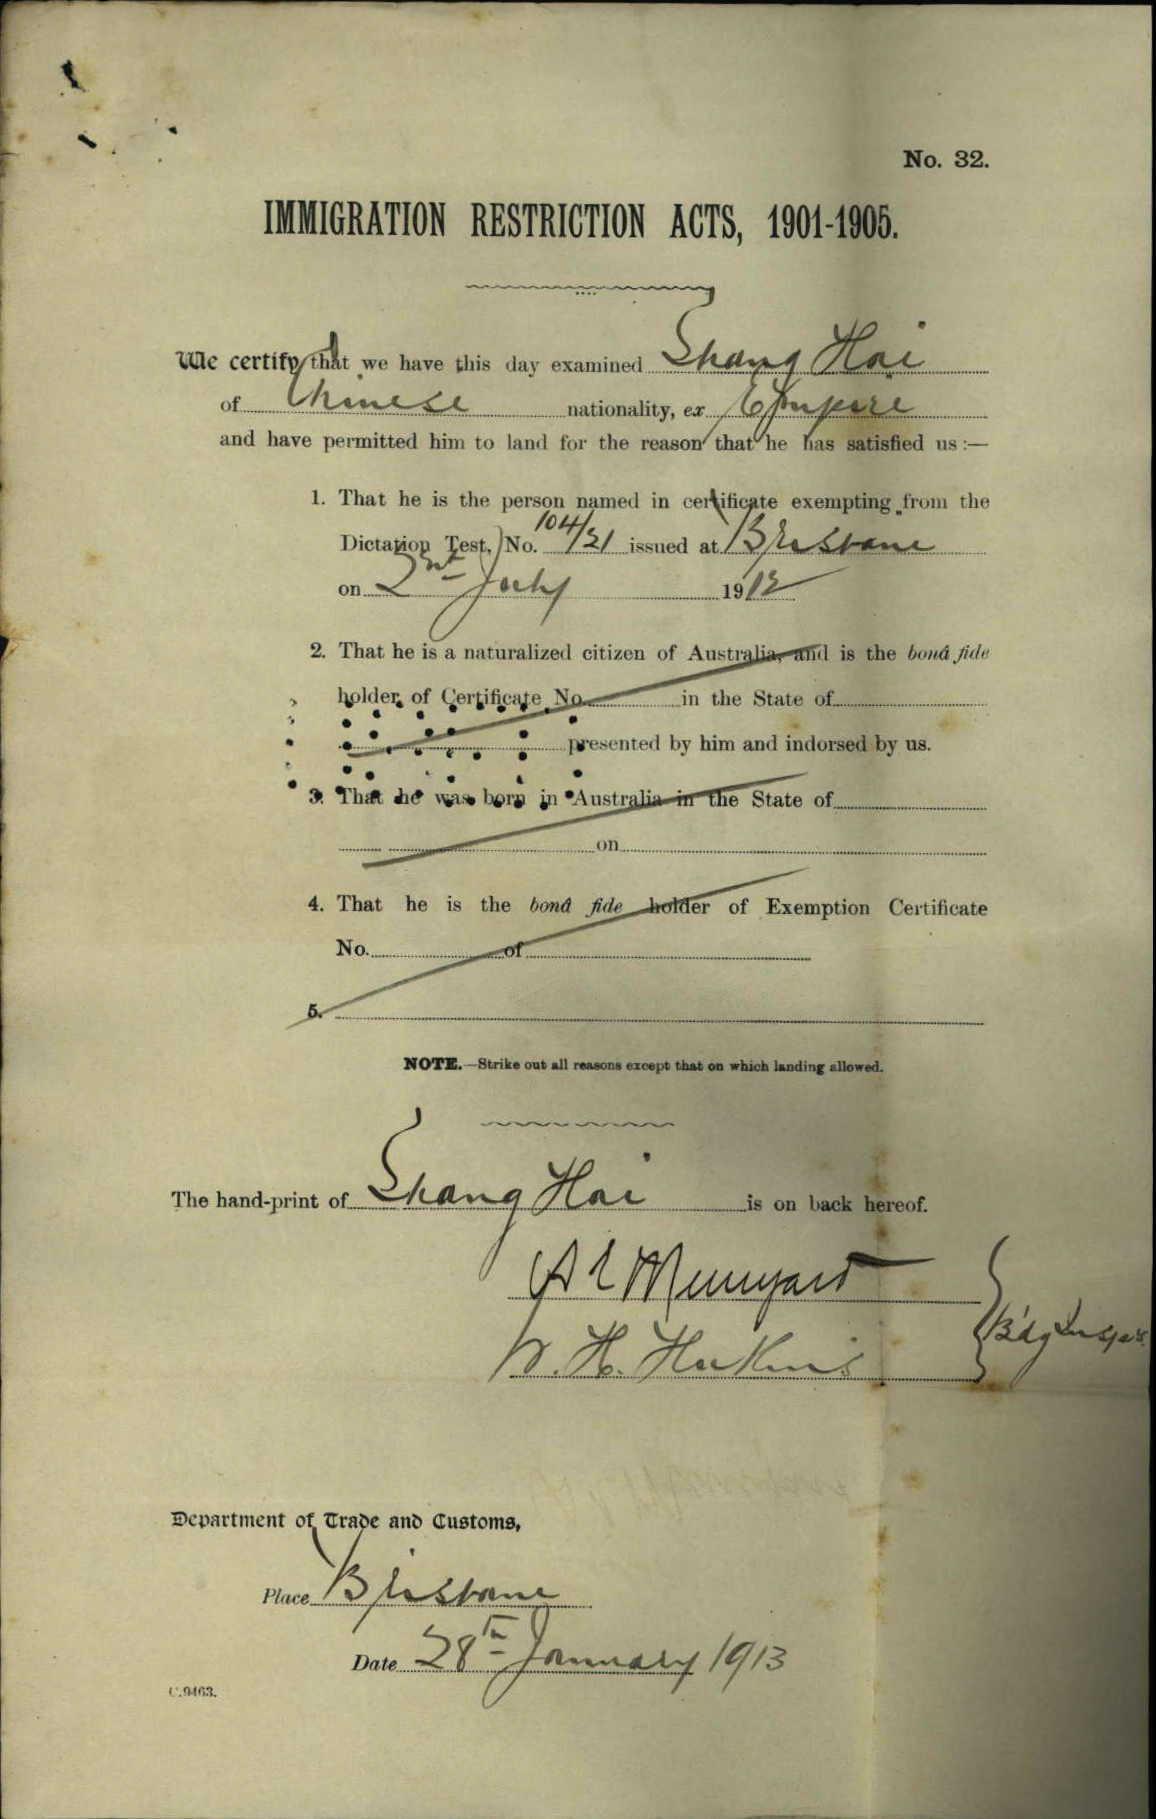 No. 32.
IMMIGRATION RESTRICTION ACTS, 1901-1905.
We certify that we have this day examined Shang Hai
of Chinese nationality, ex Empire
and have permitted him to land for the reason that he has satisfied us :—
1. That he is the person named in certificate exempting from the
Dictation Test, No. 104/21 issued at Brisbane
on 2nd July 1912
2. That he is a naturalized citizen of Australia, and is the bonâ fide
holder of Certificate No. in the State of
presented by him and indorsed by us.
3. That he was born in Australia in the State of
on
4. That he is the bonâ fide holder of Exemption Certificate
No. of
5.
NOTE.—Strike out all reasons except that on which landing allowed.
The hand-print of Shang Hai is on back hereof.
A E
W. H. Bdg Insprs
Department of Trade and Customs,
Place Brisbane
Date 28th January 1913
C.9463.